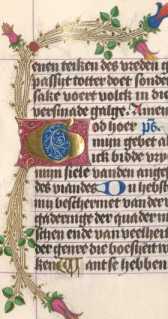 enen teiken des vreden u
passijt totter doet sonder
sake voert volck in die
verwinsade galge. Amen
od hoer
mijn gebet al
ick bidde van
mijn siele vanden anxt
des viandes Du hebste
mi beschermet van der
gadernijt der quader n
schen ende van veelheit
der genre die boesheit w
ken Want se hebben